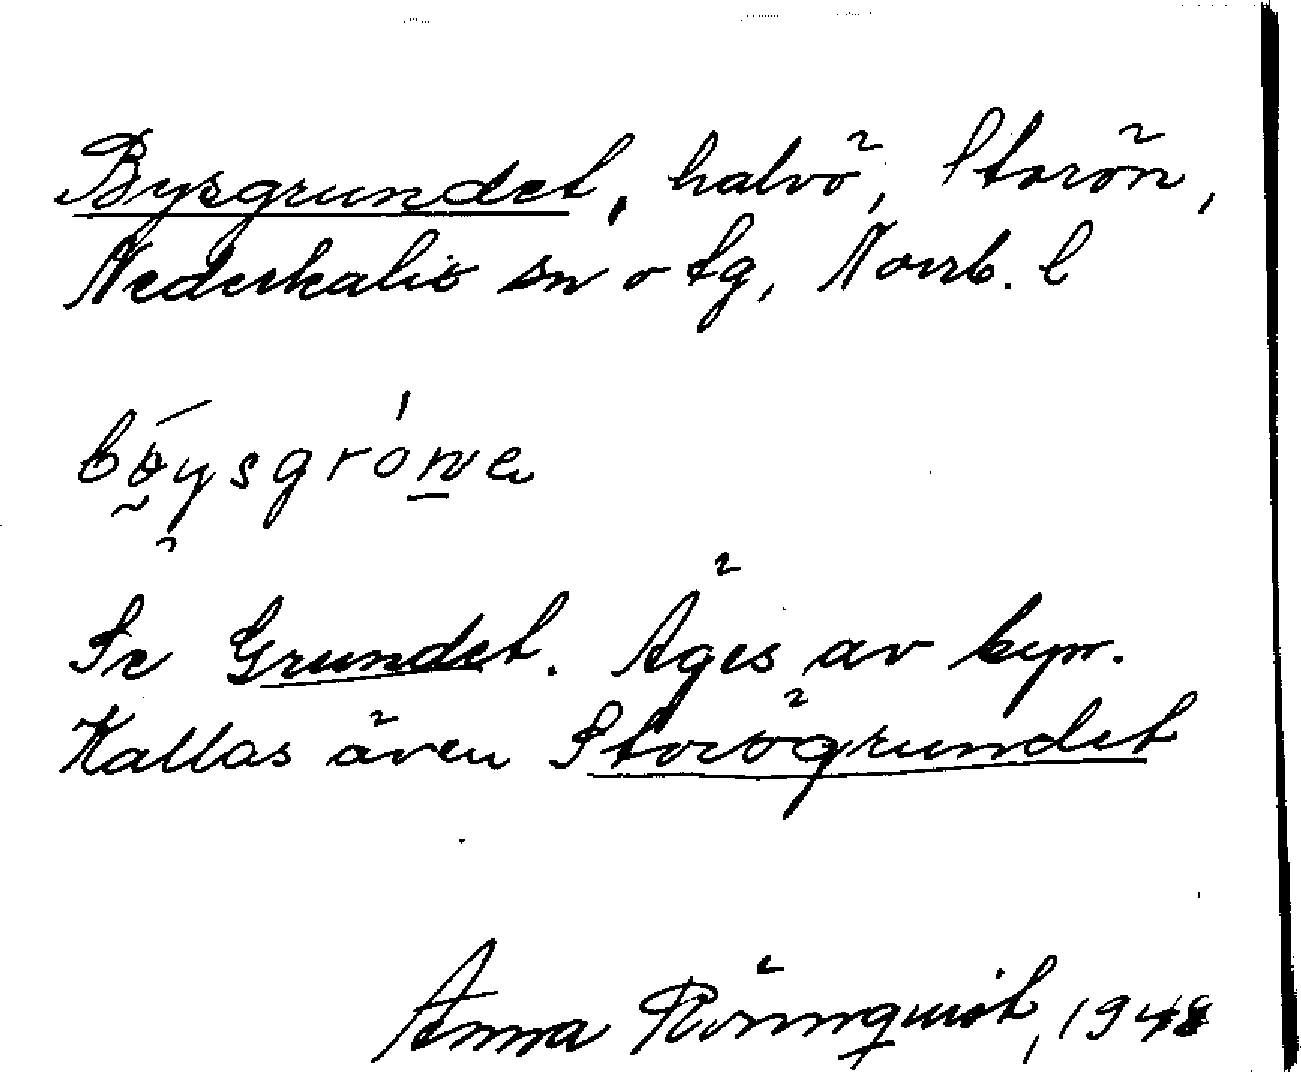 Bysgrundet, halvö, Storön,
Nederkalix sn o tg, Norrb. l
Se Grundet. Äges av byn.
Kallas även Storögrundet
Anna Rönnquist, 1948